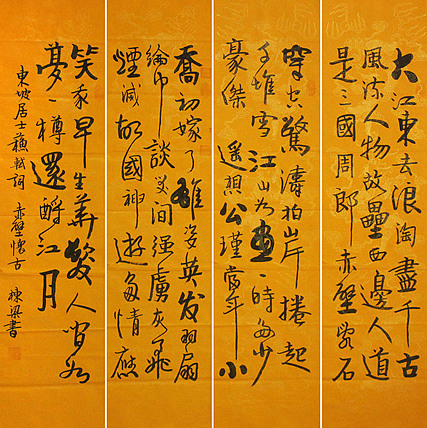 大江東去浪淘盡千古
風流人物故壘西邊人道
是三國周郎赤壁亂石
穿空驚濤拍岸捲起
千堆雪江山如畫一時多少
豪傑遙想公瑾當年小
喬初嫁了雄姿英发羽扇
綸巾談笑間强虜灰飛
煙滅故國神遊多情應
笑我早生華髮人間如
夢一樽還酹江月
東坡居士蘇軾詞 赤壁懷古 棟梁書